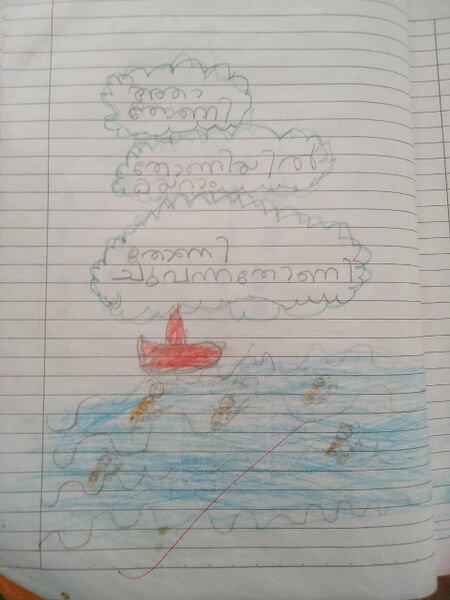 അതാ
തോണി
തോണിയിൽ
കയറാം
തോണി
ചുവന്നതോണി